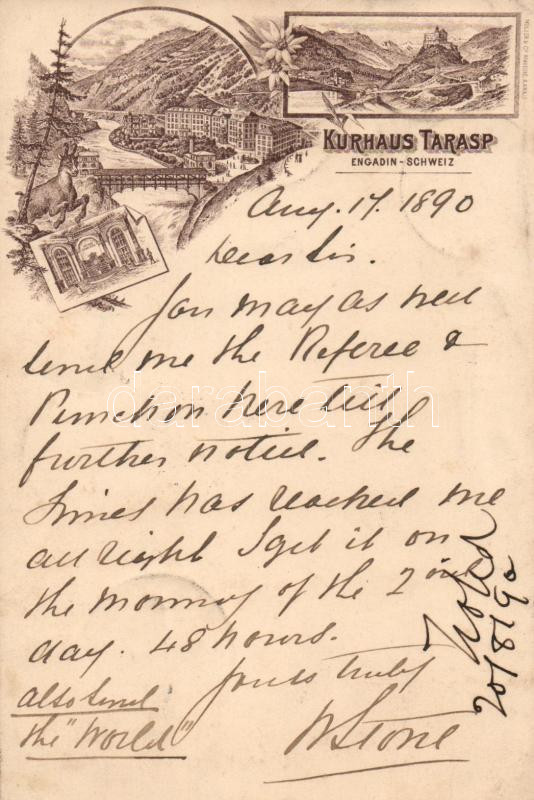 KURHAUS TARASP
ENGADIN - SCHWEIZ
Aug. 17. 1890
Dear Sir.
You may as well
send me the Referee &
Punch on here till
further notice. The
Times has reached me
all right I get it on
the morning of the 2nd
day. 48 hours.
Yours truly
W Stone
also send
the "World"
Noted
20/8/90
darabanth